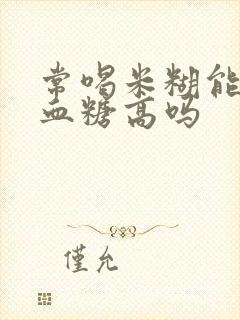 常喝米糊能
血糖高吗
僅允